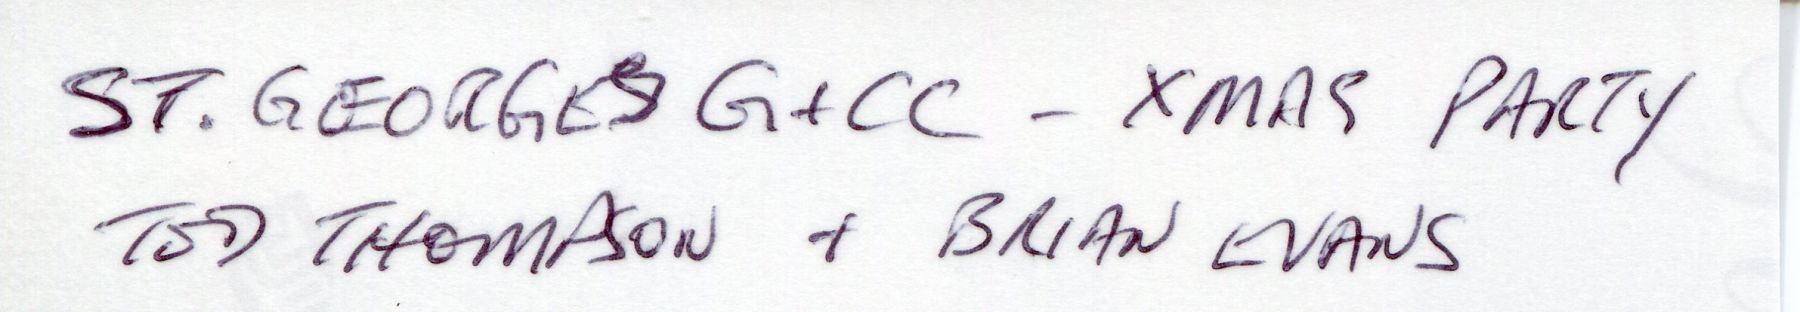 ST. GEORGES G+CC - XMAS PARTY
TOD THOMPSON + BRIAN EVANS